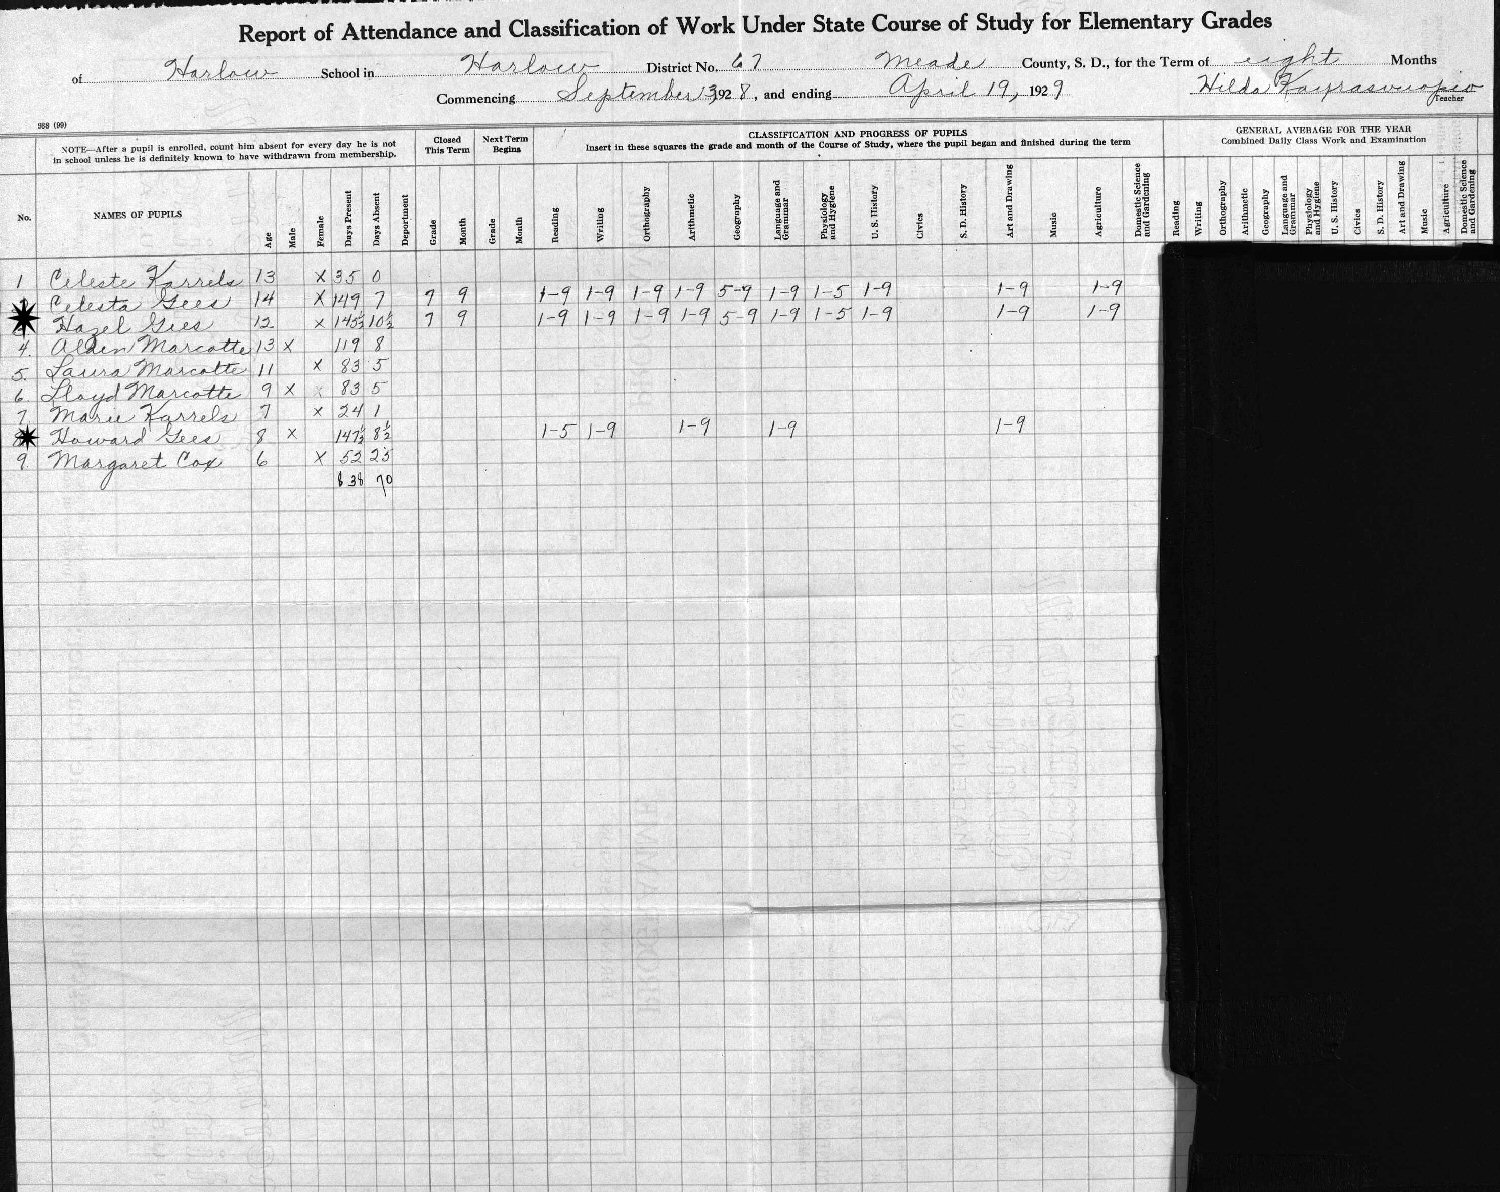 Report of Attendance and Classification of Work Under State Course of Study for Elementary Grades
of Harlow School in Harlow District No. 67 Meade County, S. D., for the Term of eight Months
Commencing September 3, 1928, and ending April 19, 1929 Hilda
Teacher
988 (99)
NOTE—After a pupil is enrolled, count him absent for every day he is not in school unless he is definitely known to have withdrawn from membership.
Closed This Term
Next Term Begins
CLASSIFICATION AND PROGRESS OF PUPILS
Insert in these squares the grade and month of the Course of Study, where the pupil began and finished during the term
GENERAL AVERAGE FOR THE YEAR
Combined Daily Class Work and Examination
No. NAMES OF PUPILS Age Male Female Days Present Days Absent Deportment Grade Month Grade Month Reading Writing Orthography Arithmetic Geography Language and Grammar Physiology and Hygiene U. S. History Civics S. D. History Art and Drawing Music Agriculture Domestic Science and Gardening Reading Writing Orthography Arithmetic Geography Language and Grammar Physiology and Hygiene U. S. History Civics S. D. History Art and Drawing Music Agriculture Domestic Science and Gardening
1 Celeste Karrels 13 x 35 0
Celesta Gees 14 x 149 7 7 9 1-9 1-9 1-9 1-9 5-9 1-9 1-5 1-9 1-9 1-9
Hazel Gees 12 x 145½ 10½ 7 9 1-9 1-9 1-9 1-9 5-9 1-9 1-5 1-9 1-9 1-9
4. Alden Marcotte 13 x 119 8
5. Laura Marcotte 11 x 83 5
6 Lloyd Marcotte 9 x 83 5
7 Marie Karrels 7 x 24 1
8 Howard Gees 8 x 147½ 8½ 1-5 1-9 1-9 1-9 1-9
9. Margaret Cox 6 x 52 25
838 70